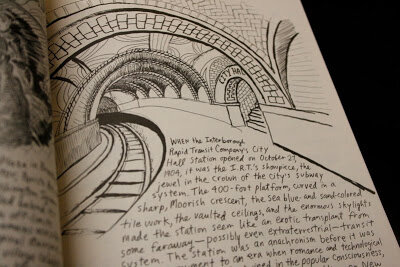 CITY HALL
WHEN the Interborough
Rapid Transit Company's City
Hall Station opened on October 27,
1904, it was the I.R.T.'s showpiece, the
jewel in the crown of the city's subway
system. The 400-foot platform, curved in a
sharp, Moorish crescent, the sea blue- and sand-colored
tile work, the vaulted ceilings, and the enormous skylights
made the station seem like an exotic transplant from
some faraway — possibly even extraterrestrial — transit
system. The station was an anachronism before it was
to an era when romance and technological
in the popular consciousness,
New